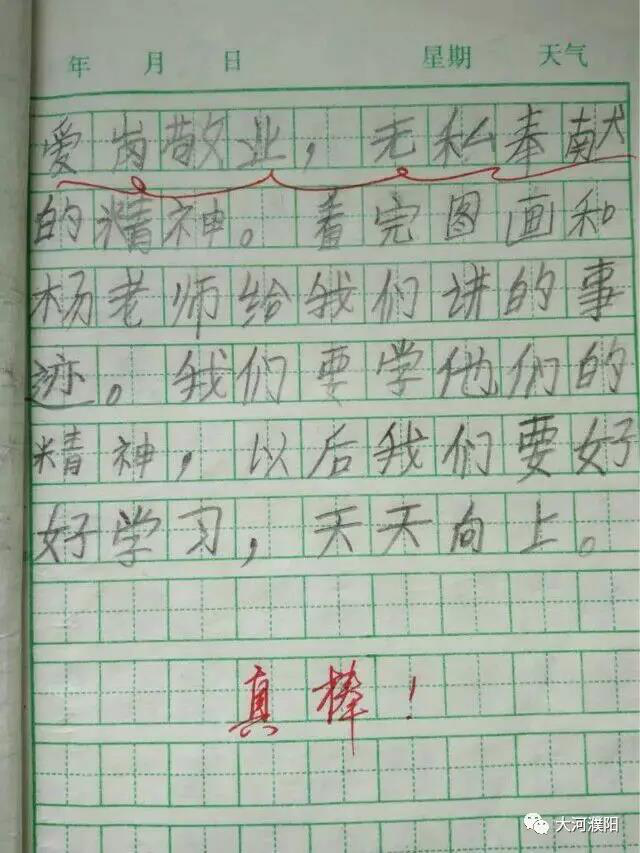 年 月 日 星期 天气
爱岗敬业，无私奉献
的精神。看完图画和
杨老师给我们讲的事
迹。我们要学他们的
精神，以后我们要好
好学习，天天向上。
真棒！
大河濮阳